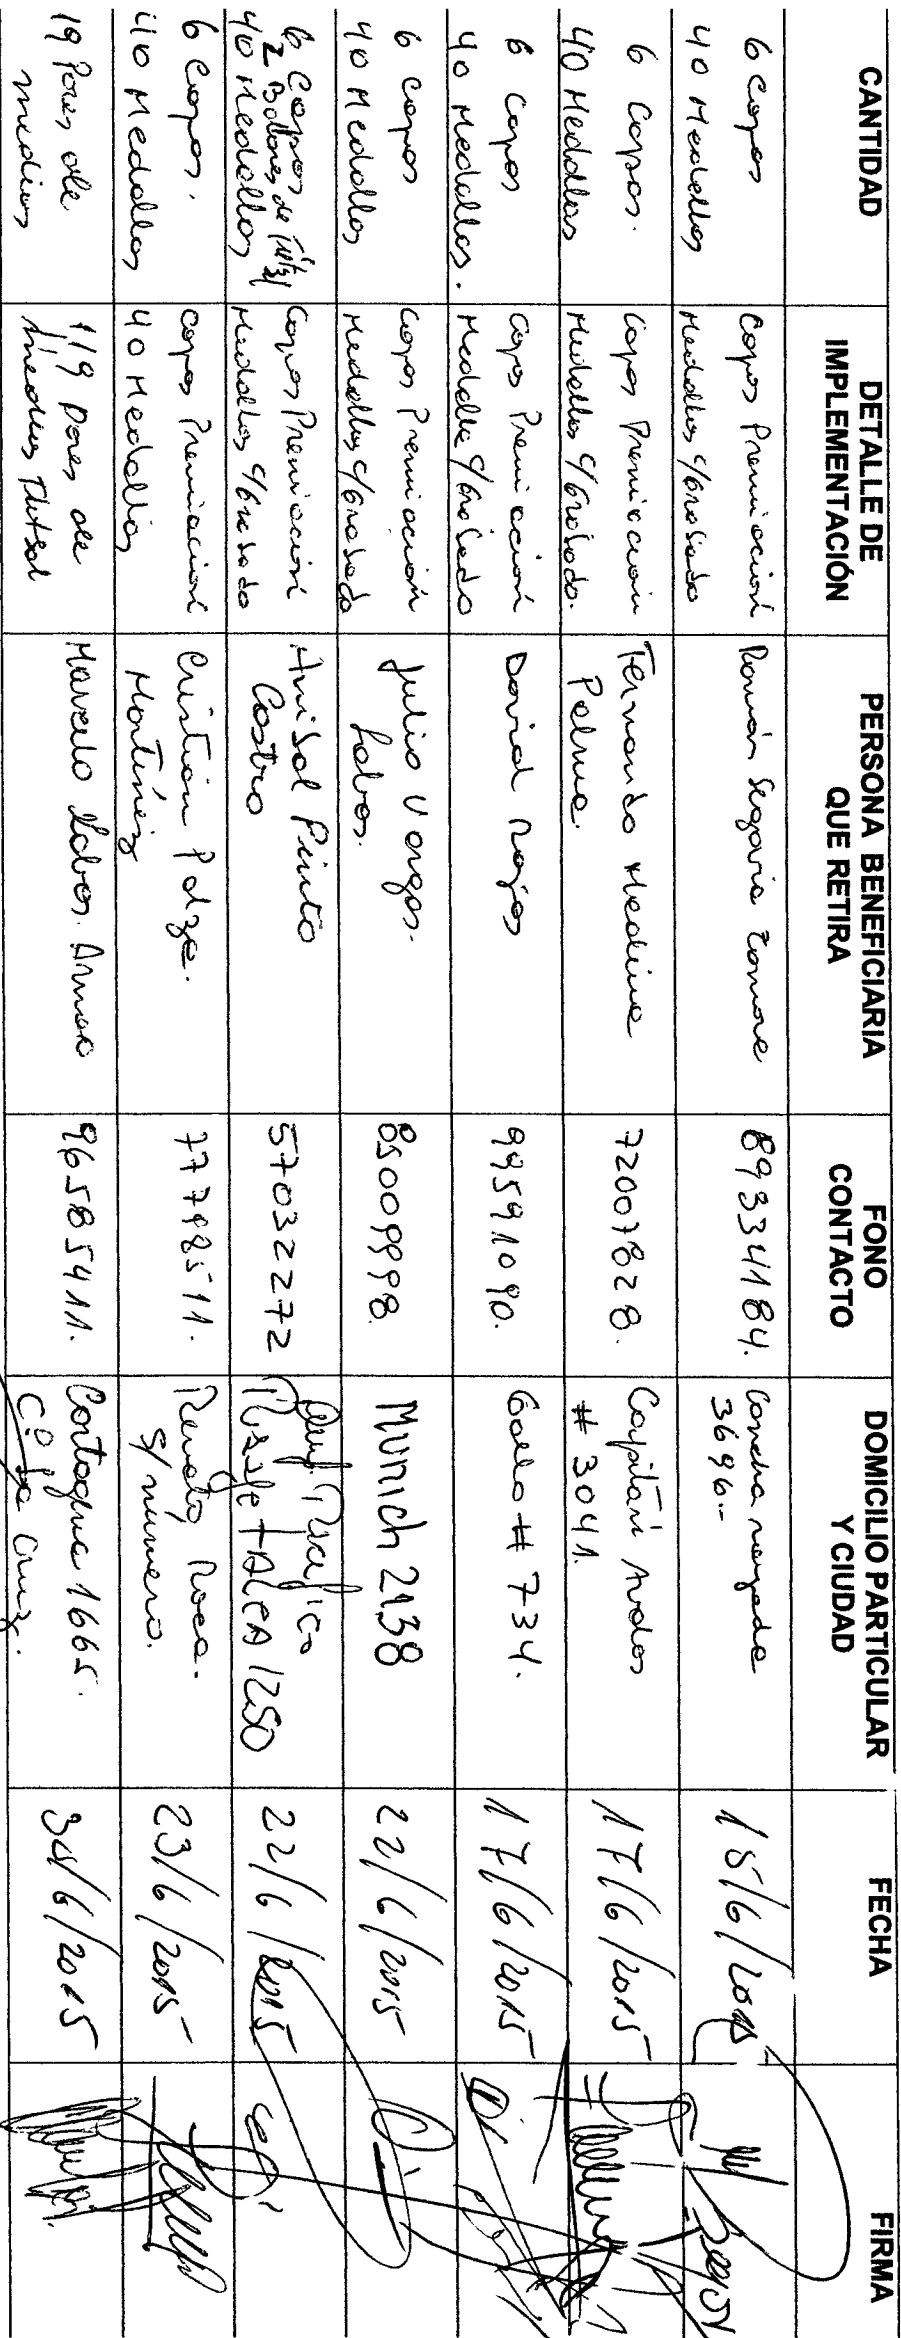 CANTIDAD
DETALLE DE
IMPLEMENTACIÓN
PERSONA BENEFICIARIA
QUE RETIRA
FONO
CONTACTO
DOMICILIO PARTICULAR
Y CIUDAD
FECHA
FIRMA
6 Copas
40 Medallas
Copas Premiación
Medallas c/Grabado
Román Segovia
89334184.
Concha
3696.-
18/6/2015
6 Copas.
40 Medallas
Copas Premiación
Medallas c/Grabado.
Fernando Medina
Palma.
72007828.
Capitán Avalos
# 3041.
17/6/2015
6 Copas
40 Medallas.
Copas Premiación
Medalla c/Grabado
David Rojas
99591090.
# 734.
17/6/2015
6 Copas
40 Medallas
Copas Premiación
Medallas c/Grabado
Julio Vargas.
Lobos.
85009998.
Munich 2938
22/6/2015
6 Copas
2 Balones de Futsal
40 Medallas
Copas Premiación
Medallas c/Grabado
Pinto
Castro
57032272
Pacífico
Pasaje TALCA 1250
22/6/2015
6 Copas.
40 Medallas
Copas Premiación
40 Medallas
Cristian
Martínez
77798511.
Roca.
S/número.
23/6/2015
19 Pares de
medias
119 Pares de
medias Futsal
Marcelo Lobos.
96585411.
Cartagena 1665.
Cruz.
/6/2015